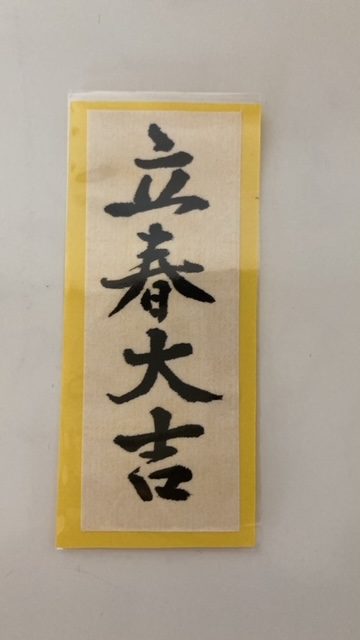 立春大吉